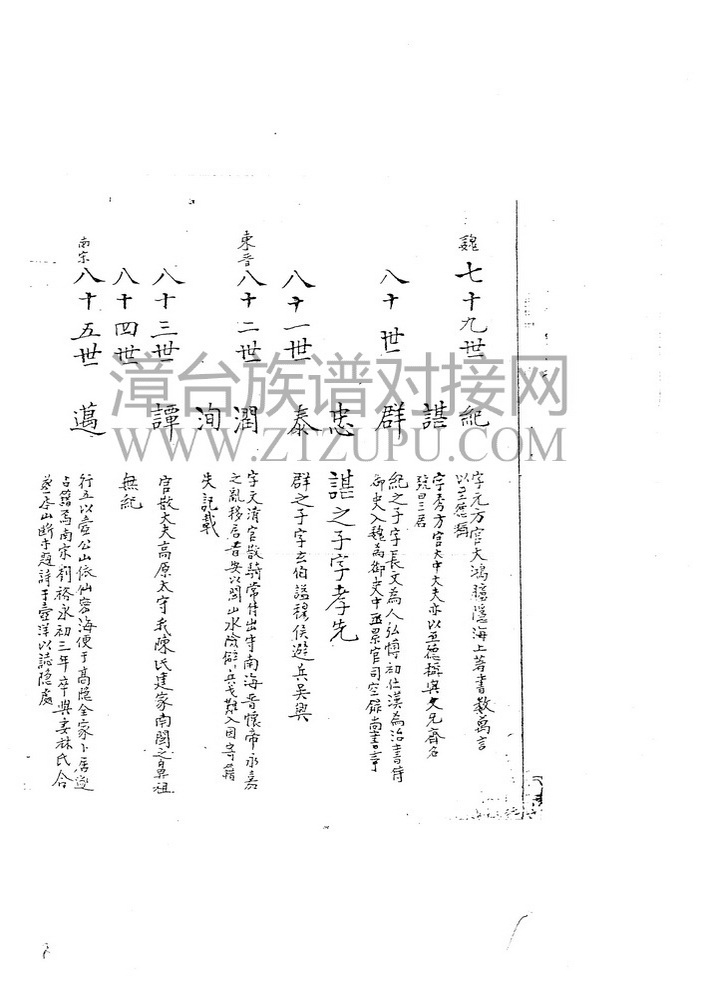 魏 七十九世 紀 字元方官大鴻臚隱海上著書數萬言
以至德稱
諶 字季方官大中大夫亦以至德稱與父兄齊名
號曰三君
八十世 群 紀之子字長文為人弘博初仕漢為治書侍
御史入魏為御史中丞景官司空錄尚書事
忠 諶之子字孝先
八十一世 泰 群之子字玄伯謚穆侯避兵吳興
東晋 八十二世 潤 字文清官散騎常侍出守南海晋懷帝永嘉
之亂移居晋安以閩山水險僻兵戈難入因寄籍
洵 失記載
八十三世 譚 官散大夫高原太守我陳氏建家南閩之鼻祖
八十四世 無紀
南宋 八十五世 邁 行五以壺公山依仙容海便于高隱全家卜居
占籍焉南宋劉裕永初三年卒與妻林氏合
山斷題詩于壺洋以誌隱處
漳台族谱对接网
WWW.ZTZUPU.COM